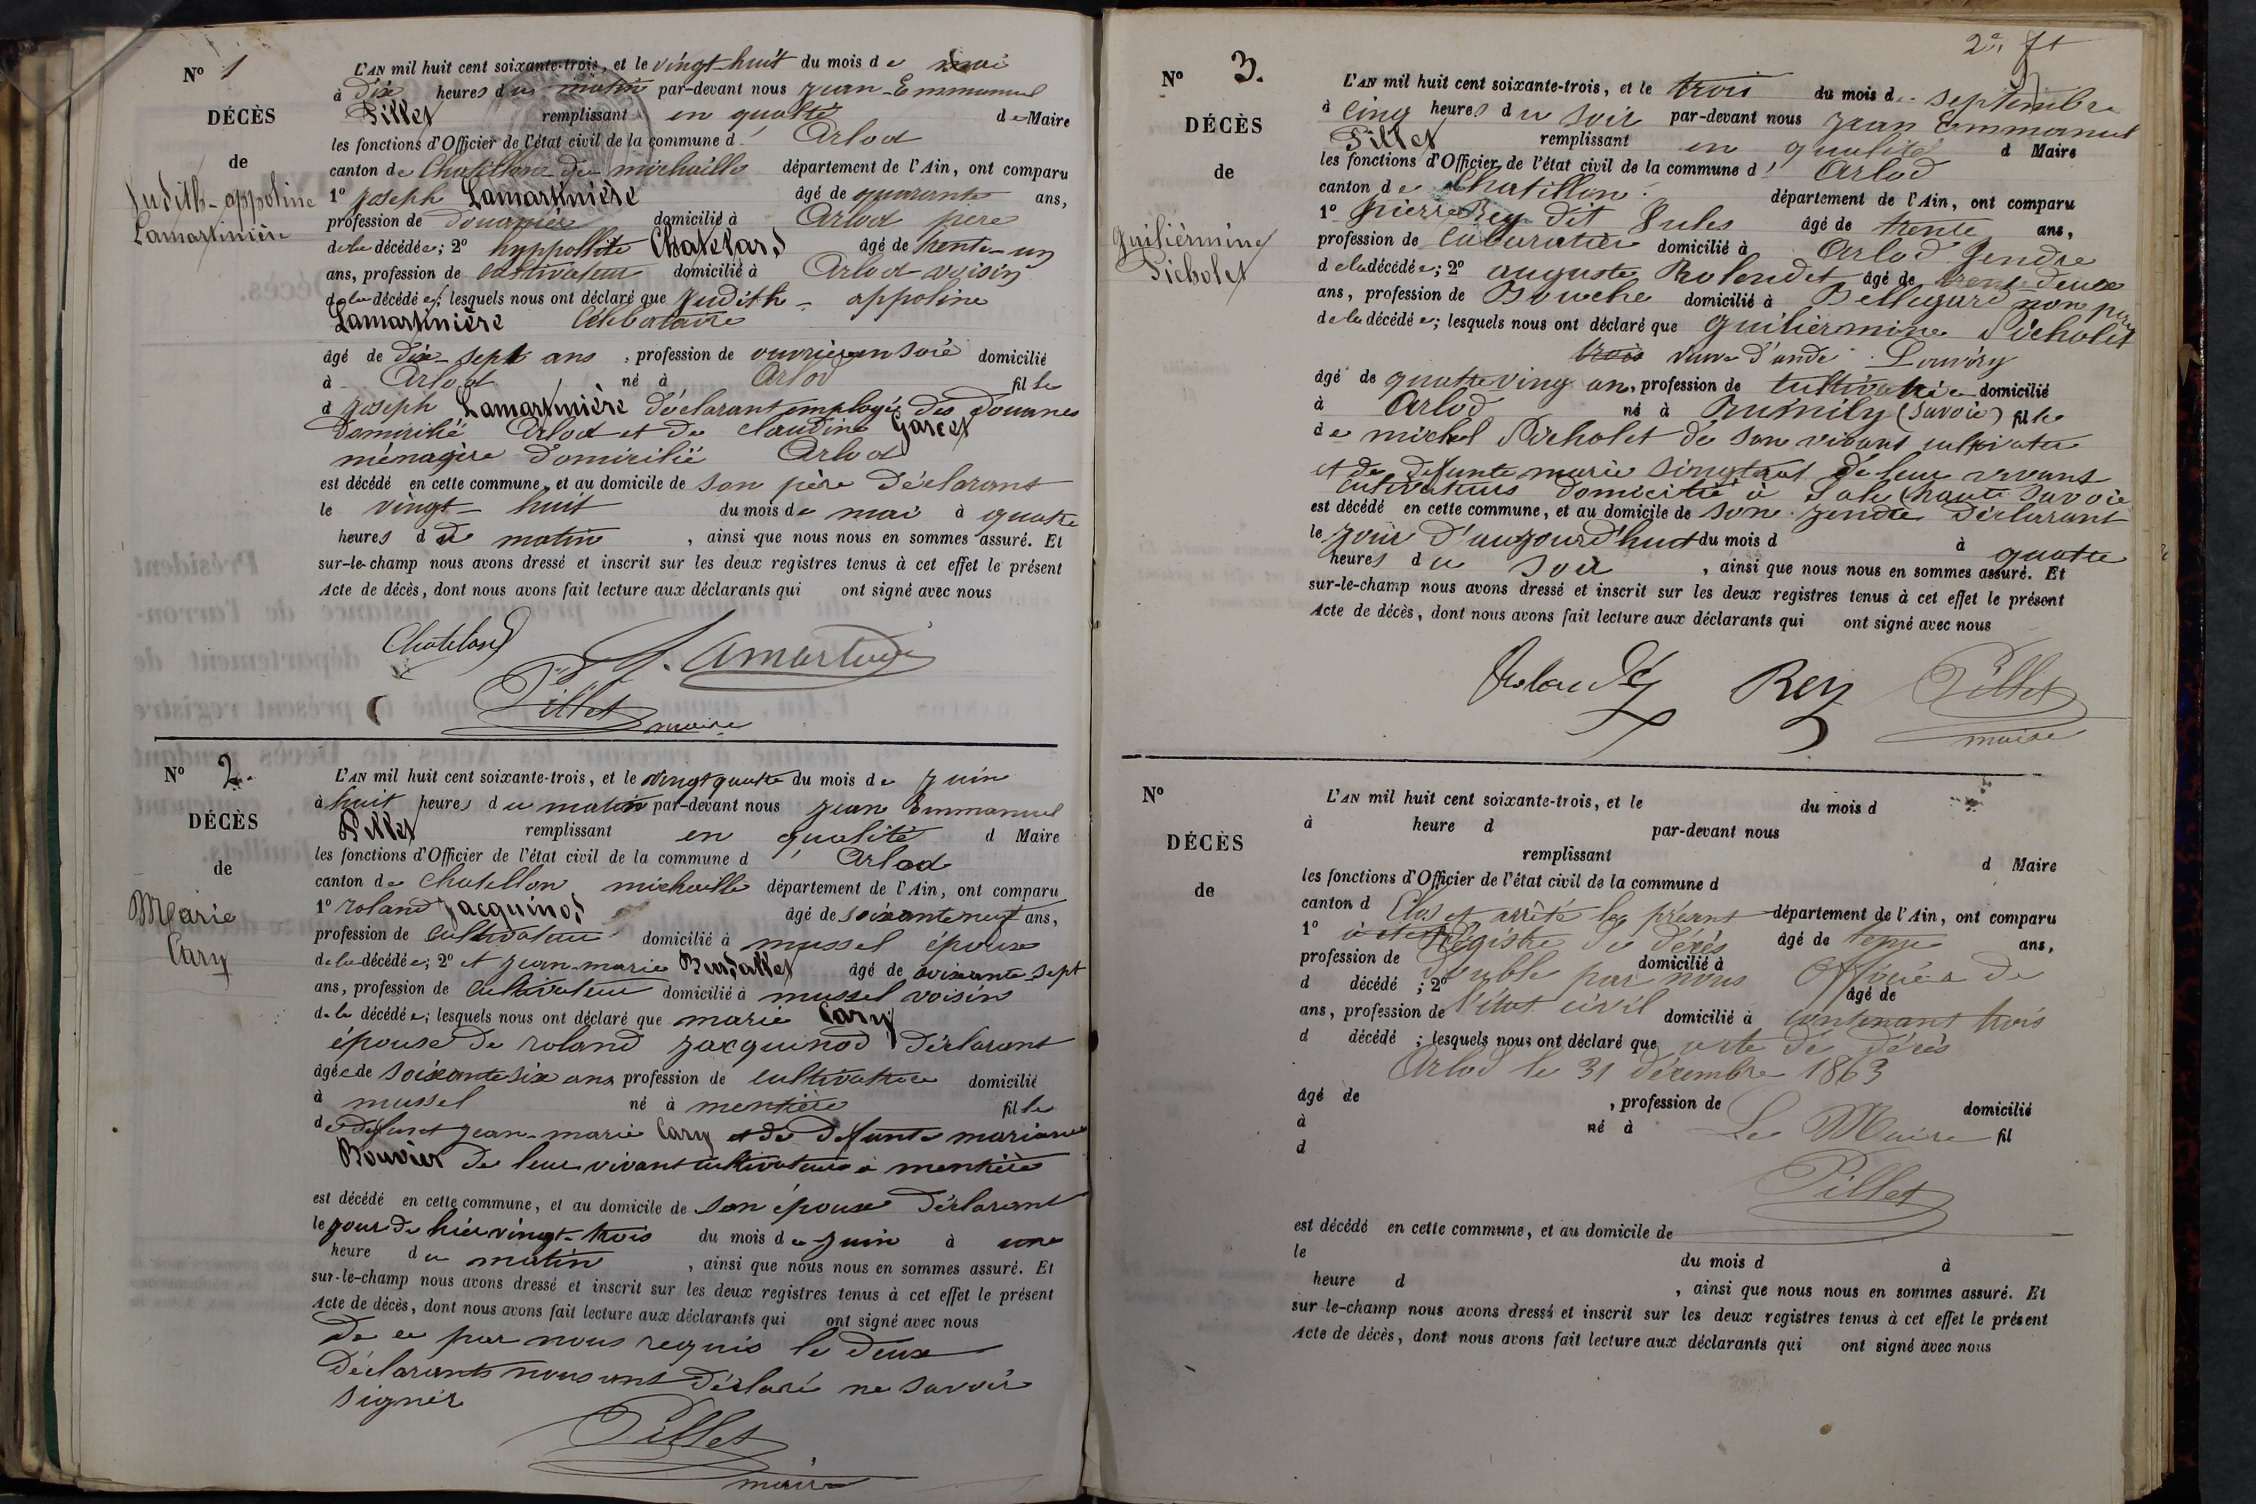 N° 1
DÉCÈS
de
Judith-appoline
Lamartinière
L'AN mil huit cent soixante-trois, et le vingt-huit du mois de mai
à dix heures du matin par-devant nous Jean-Emmanuel
Pillet remplissant en qualité de Maire
les fonctions d'Officier de l'état civil de la commune d' Arlod
canton de Chatillon de michaille département de l'Ain, ont comparu
1° Joseph Lamartinière âgé de quarante ans,
profession de douanier domicilié à Arlod père
de la décédée; 2° hyppollite Chatelard âgé de trente-un
ans, profession de cultivateur domicilié à Arlod voisin
de la décédée; lesquels nous ont déclaré que Judith-appoline
Lamartinière Célibataire
âgé de dix-sept ans, profession de ouvrière en soie domicilié
à Arlod né à Arlod fille
d Joseph Lamartinière déclarant employé des douanes
domicilié Arlod et de claudine Garcet
ménagère domicilié Arlod
est décédé en cette commune, et au domicile de son père déclarant
le vingt-huit du mois de mai à quatre
heures du matin, ainsi que nous nous en sommes assuré. Et
sur-le-champ nous avons dressé et inscrit sur les deux registres tenus à cet effet le présent
Acte de décès, dont nous avons fait lecture aux déclarants qui ont signé avec nous
Chatelard
J. Lamartinière
Pillet
maire
N° 2.
DÉCÈS
de
Marie
Cary
L'AN mil huit cent soixante-trois, et le vingt quatre du mois de Juin
à huit heures du matin par-devant nous Jean Emmanuel
Pillet remplissant en qualité d Maire
les fonctions d'Officier de l'état civil de la commune d' Arlod
canton de Chatillon michaille département de l'Ain, ont comparu
1° roland Jacquinod âgé de soixante neuf ans,
profession de cultivateur domicilié à mussel époux
de la décédée; 2° et Jean-marie Burdallet âgé de soixante-sept
ans, profession de cultivateur domicilié à mussel voisin
de la décédée; lesquels nous ont déclaré que marie Cary
épouse de roland Jacquinod déclarant
âgée de soixante six ans profession de cultivatrice domicilié
à mussel né à mentière fille
de défunt Jean-marie Cary et de défunte mariane
Bouvier de leur vivant cultivateurs à mentière
est décédé en cette commune, et au domicile de son époux déclarant
le jour de hier vingt-trois du mois de Juin à une
heure du matin, ainsi que nous nous en sommes assuré. Et
sur-le-champ nous avons dressé et inscrit sur les deux registres tenus à cet effet le présent
Acte de décès, dont nous avons fait lecture aux déclarants qui ont signé avec nous
De ce par nous requis le deux
déclarants nous ont déclaré ne savoir
signer
Pillet
maire
2e ft
N° 3.
DÉCÈS
de
Guiliermine
Picholet
L'AN mil huit cent soixante-trois, et le trois du mois de septembre
à cinq heures du soir par-devant nous Jean Emmanuel
Pillet remplissant en qualité d Maire
les fonctions d'Officier de l'état civil de la commune d' Arlod
canton de Chatillon département de l'Ain, ont comparu
1° pierre Rey dit Jules âgé de trente ans,
profession de cabaratier domicilié à Arlod Gendre
de la décédée; 2° auguste Rolandet âgé de trente deux
ans, profession de Bouche domicilié à Bellegarde non parent
de la décédée; lesquels nous ont déclaré que guiliermine Picholet
trois veuve d'andé Louvéry
âgé de quatre ving an, profession de cultivatrice domicilié
à Arlod né à Rumilly (Savoie) fille
de michel Picholet de son vivant cultivateur
et de défunte marie de leur vivans
cultivateurs domicilié à Sales (haute Savoie
est décédé en cette commune, et au domicile de son gendre déclarant
le jour d'aujourd'huit du mois d à quatre
heures du soir, ainsi que nous nous en sommes assuré. Et
sur-le-champ nous avons dressé et inscrit sur les deux registres tenus à cet effet le présent
Acte de décès, dont nous avons fait lecture aux déclarants qui ont signé avec nous
Rolandet Rey Pillet
maire
N°
DÉCÈS
de
L'AN mil huit cent soixante-trois, et le du mois d
à heure d par-devant nous
remplissant d Maire
les fonctions d'Officier de l'état civil de la commune d
canton d Clos et arrêté le présent département de l'Ain, ont comparu
1° Régistre de décès âgé de tenu ans,
profession de double par nous domicilié à Officier de
d décédé ; 2° âgé de
ans, profession de l'état civil domicilié à contenant trois
d décédé ; lesquels nous ont déclaré que acte de décès
Arlod le 31 décembre 1863
âgé de , profession de domicilié
à né à Le Maire fil
d
Pillet
est décédé en cette commune, et au domicile de
le du mois d à
heure d , ainsi que nous nous en sommes assuré. Et
sur-le-champ nous avons dressé et inscrit sur les deux registres tenus à cet effet le présent
Acte de décès, dont nous avons fait lecture aux déclarants qui ont signé avec nous